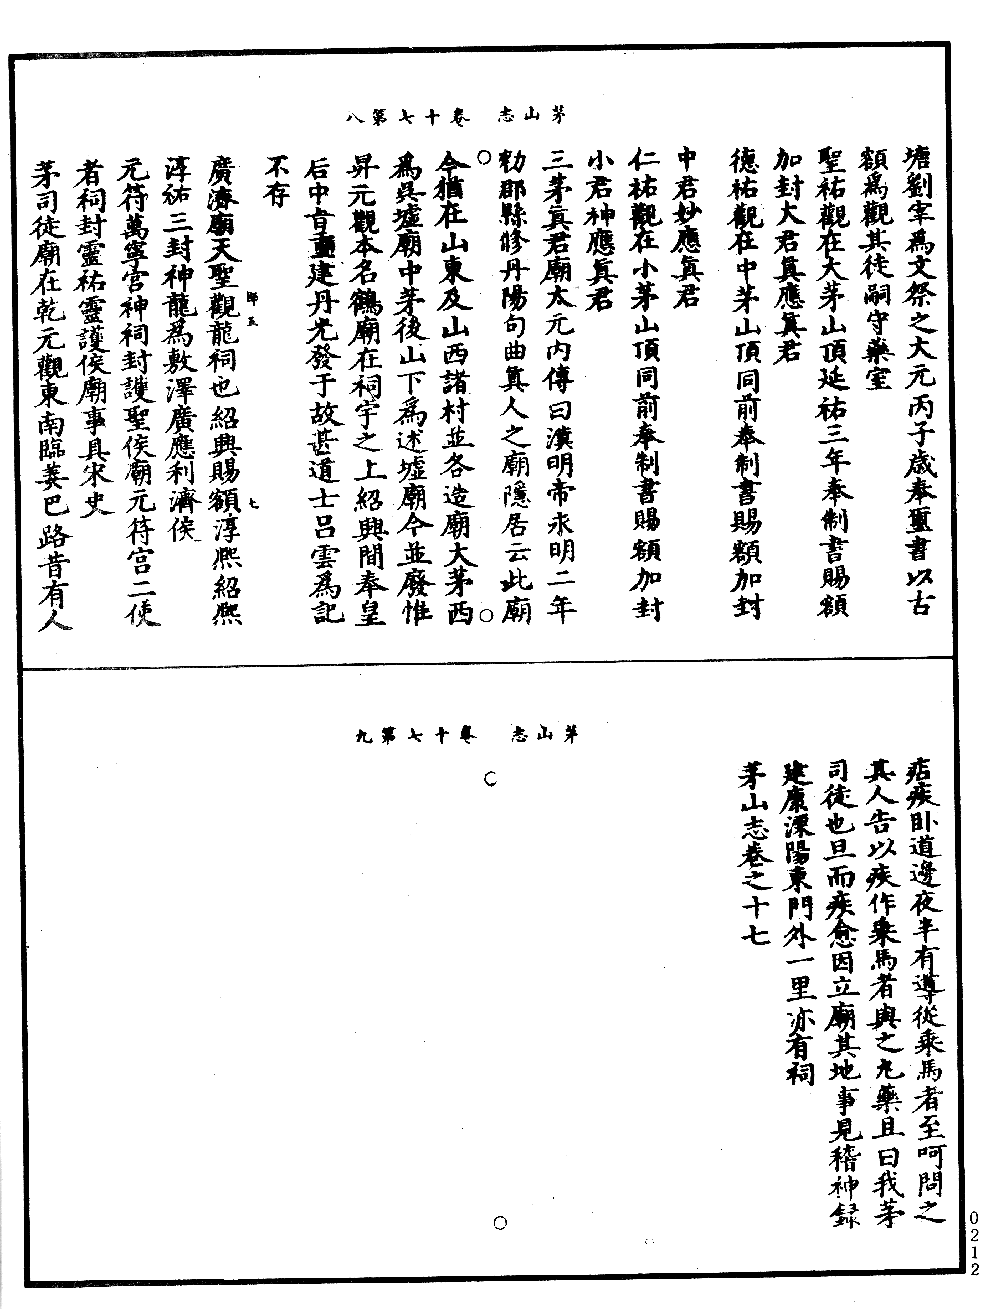 茅山志　卷十七第八
塘劉宰爲文祭之大元丙子歲奉璽書以古
額爲觀其徒嗣守藥室
聖祐觀在大茅山頂延祐三年奉制書賜額
加封大君眞應眞君
德祐觀在中茅山頂同前奉制書賜額加封
中君妙應眞君
仁祐觀在小茅山頂同前奉制書賜額加封
小君神應眞君
三茅眞君廟太元內傳曰漢明帝永明二年
勑郡縣修丹陽句曲眞人之廟隱居云此廟
今猶在山東及山西諸村並各造廟大茅西
爲吳墟廟中茅後山下爲述墟廟今並廢惟
昇元觀本名鶴廟在祠宇之上紹興間奉皇
后中旨重建丹光發于故甚道士呂雲爲記
不存
廣濟廟天聖觀龍祠也紹興賜額淳熙紹熙
淳祐三封神龍爲敷澤廣應利濟侯
元符萬寧宮神祠封護聖侯廟元符宮二使
者祠封靈祐靈護侯廟事具宋史
茅司徒廟在乾元觀東南臨蔞巴路昔有人
七
茅山志　卷十七第九
痁疾臥道邊夜半有導從乘馬者至呵問之
其人告以疾作乘馬者與之丸藥且曰我茅
司徒也旦而疾愈因立廟其地事見稽神録
建康溧陽東門外一里亦有祠
茅山志卷之十七
0212